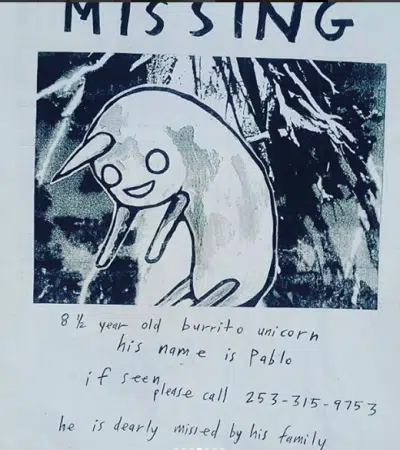 MISSING
8 ½ year old burrito unicorn
his name is Pablo
if seen
please call 253-315-9753
he is dearly missed by his family